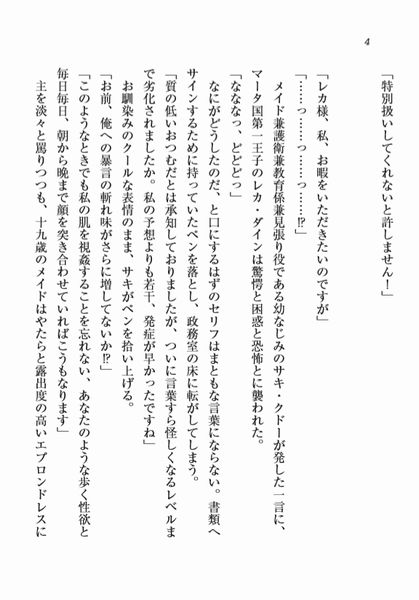 4
「特別扱いしてくれないと許しません！」
「レカ様、私、お暇をいただきたいのですが」
「……っ……っ……っ……!?」
メイド兼護衛兼教育係兼見張り役である幼なじみのサキ・クドーが発した一言に、
マータ国第一王子のレカ・ダインは驚愕と困惑と恐怖とに襲われた。
「なななっ、どどどっ」
なにがどうしたのだ、と口にするはずのセリフはまともな言葉にならない。書類へ
サインするために持っていたペンを落とし、政務室の床に転がしてしまう。
「質の低いおつむだとは承知しておりましたが、ついに言葉すら怪しくなるレベルま
で劣化されましたか。私の予想よりも若干、発症が早かったですね」
お馴染みのクールな表情のまま、サキがペンを拾い上げる。
「お前、俺への暴言の斬れ味がさらに増してないか!?」
「このようなときでも私の肌を視姦することを忘れない、あなたのような歩く性欲と
毎日毎日、朝から晩まで顔を突き合わせていればこうもなります」
主を淡々と罵りつつも、十九歳のメイドはやたらと露出度の高いエプロンドレスに